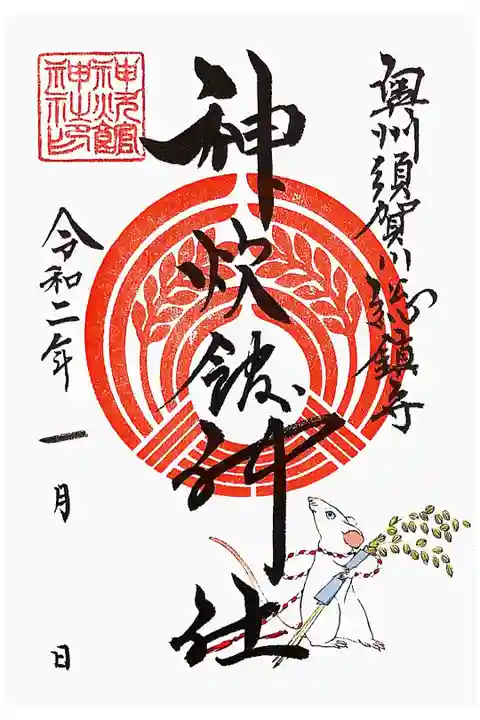 奥州須賀川総鎮守
神炊館神社
令和二年 一月 日
神炊館
神社印